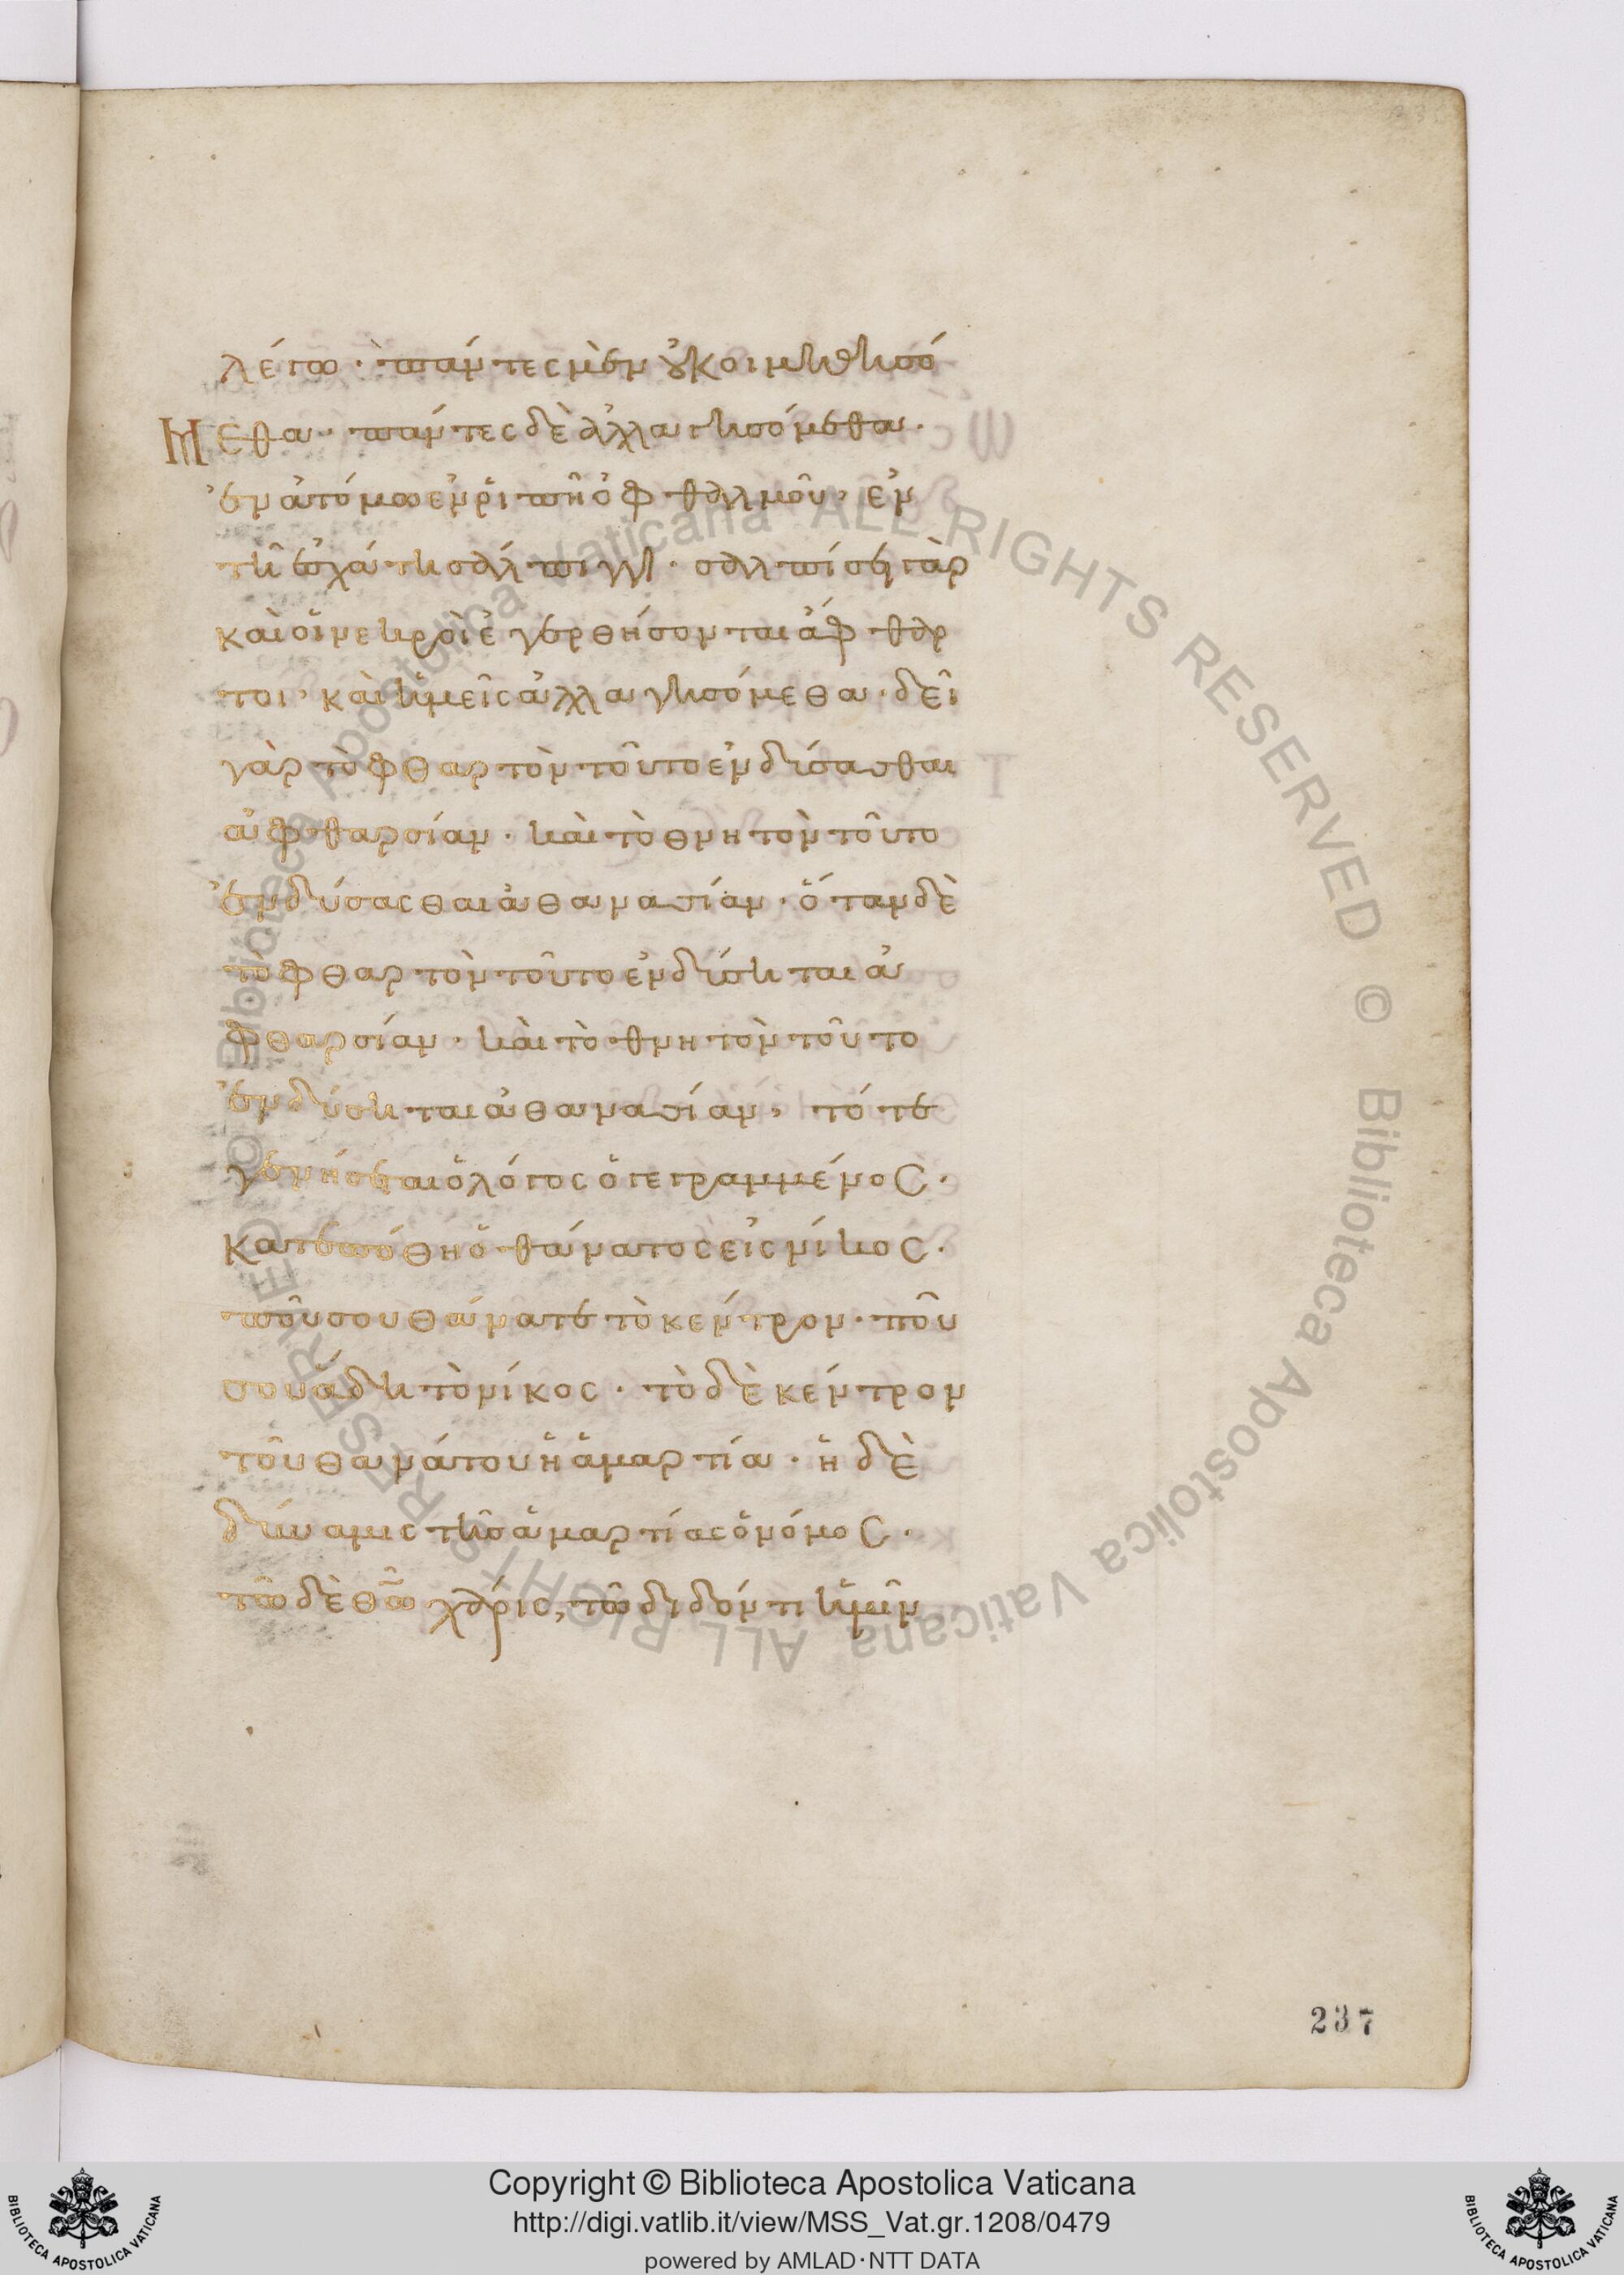 λέγω· πάντες μὲν οὐ κοιμηθησό
Μεθα· πάντες δὲ ἀλλαγησόμεθα·
ἐν ἀτόμω ἐν ῥιπῆ ὀφθαλμοῦ· ἐν
τῆ ἐσχάτη σάλπιγγι· σαλπίσει γὰρ
καὶ οἱ νεκροὶ ἐγερθήσονται ἄφθαρ
τοι· καὶ ἡμεῖς ἀλλαγησόμεθα· δεῖ
γὰρ τὸ φθαρτὸν τοῦτο ἐνδύσασθαι
ἀφθαρσίαν· καὶ τὸ θνητὸν τοῦτο
ἐνδύσασθαι ἀθανασίαν· ὅταν δὲ
τὸ φθαρτὸν τοῦτο ἐνδύσηται ἀ
φθαρσίαν· καὶ τὸ θνητὸν τοῦτο
ἐνδύσηται ἀθανασίαν, τότε
γενήσεται ὁ λόγος ὁ γεγραμμένος·
κατεπόθη ὁ θάνατος εἰς νίκος·
ποῦ σου θάνατε τὸ κέντρον· ποῦ
σου ἅδη τὸ νίκος· τὸ δὲ κέντρον
τοῦ θανάτου ἡ ἁμαρτία· ἡ δὲ
δύναμις τῆς ἁμαρτίας ὁ νόμος·
τῶ δὲ θῶ χάρις, τῶ διδόντι ἡμῖν
237
ALL RIGHTS RESERVED © Biblioteca Apostolica Vaticana ALL RIGHTS RESERVED © Biblioteca Apostolica Vaticana
Copyright © Biblioteca Apostolica Vaticana
http://digi.vatlib.it/view/MSS_Vat.gr.1208/0479
powered by AMLAD·NTT DATA
BIBLIOTECA APOSTOLICA VATICANA
BIBLIOTECA APOSTOLICA VATICANA